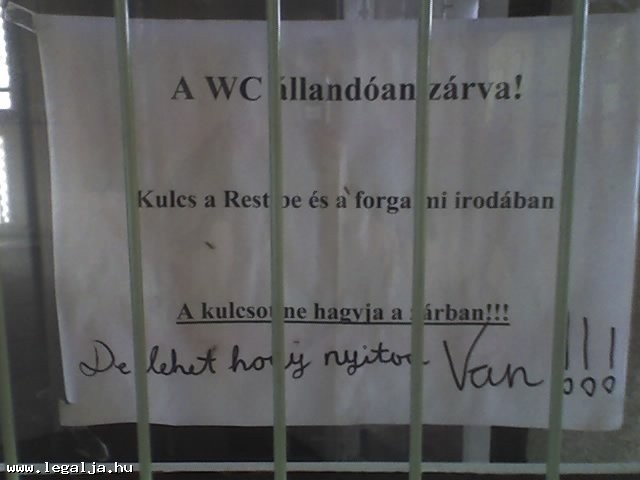 A WC állandóan zárva!
Kulcs a Rest be és a forgalmi irodában
A kulcsot ne hagyja a zárban!!!
De lehet hogy nyitva Van!!!
www.legalja.hu